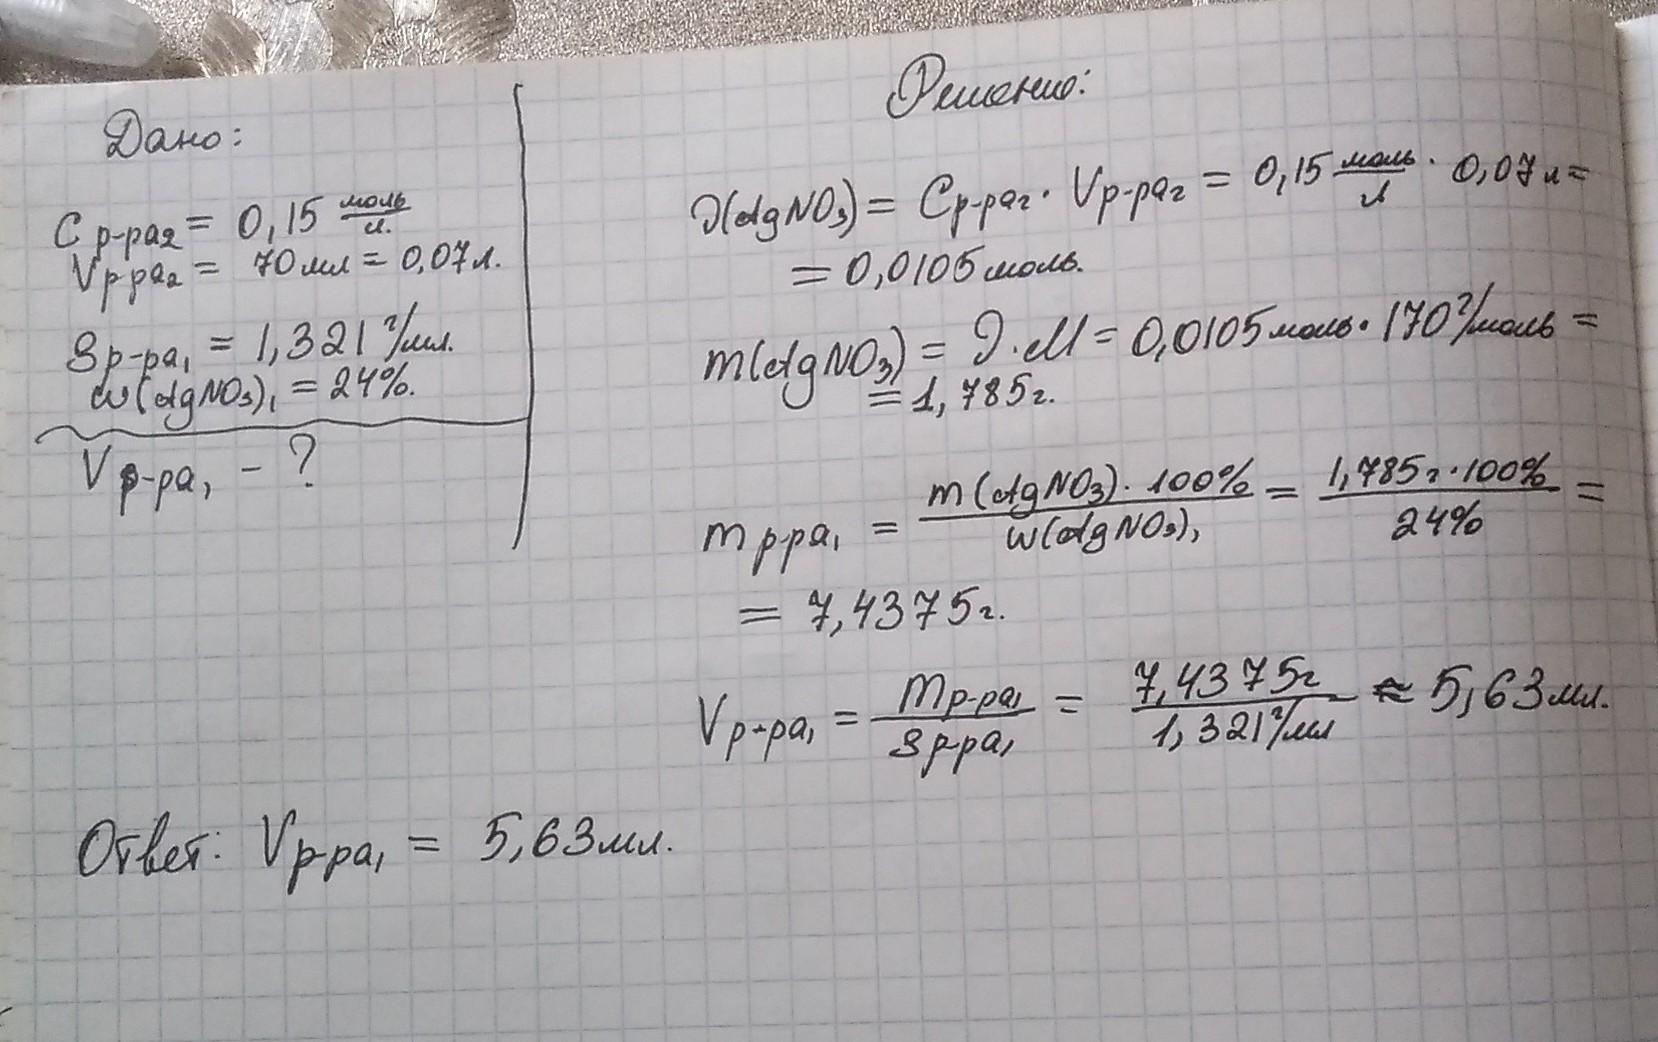 Дано:
C р-ра2 = 0,15 моль/л.
V р-ра2 = 70 мл = 0,07 л.
ρ р-ра1 = 1,321 г/мл.
ω(AgNO3)1 = 24%.
V р-ра1 - ?
Решение:
ν(AgNO3) = C р-ра2 · V р-ра2 = 0,15 моль/л · 0,07 л =
= 0,0105 моль.
m(AgNO3) = ν · M = 0,0105 моль · 170 г/моль =
= 1,785 г.
m р-ра1 = m(AgNO3) · 100% / ω(AgNO3)1 = 1,785 г · 100% / 24% =
= 7,4375 г.
V р-ра1 = m р-ра1 / ρ р-ра1 = 7,4375 г / 1,321 г/мл ≈ 5,63 мл.
Ответ: V р-ра1 = 5,63 мл.